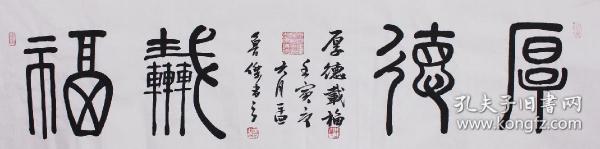 厚德載福
厚德載福
壬寅年
六月
魯
孔夫子旧书网
www.kongfz.com